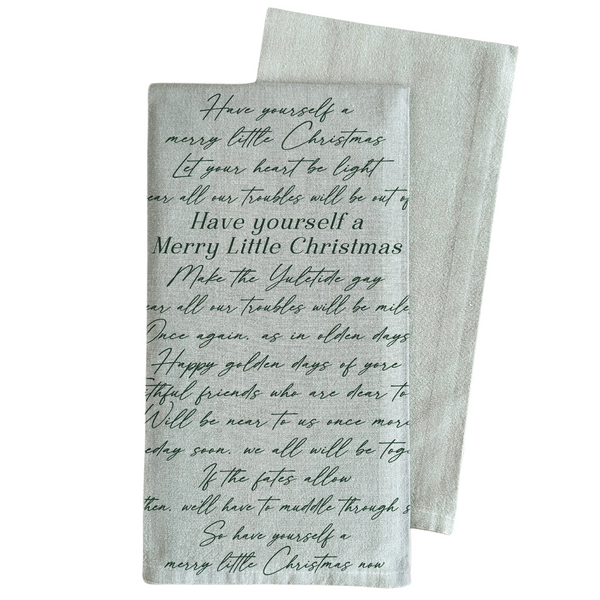 Have yourself a
merry little Christmas
Let your heart be light
ear all our troubles will be out of
Have yourself a
Merry Little Christmas
Make the Yuletide gay
ear all our troubles will be mile
Once again, as in olden days
Happy golden days of yore
ithful friends who are dear to
Will be near to us once more
eday soon, we all will be toge
If the fates allow
then, we'll have to muddle through s
So have yourself a
merry little Christmas now